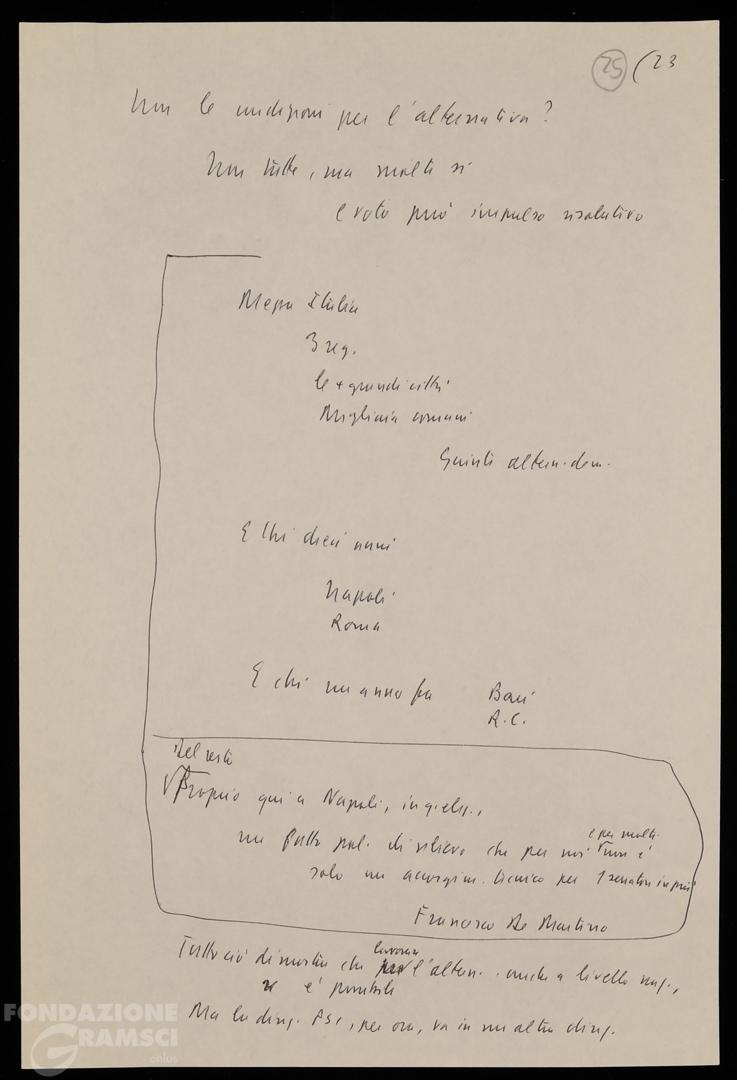 25 (23
Non le condizioni per l'alternativa?
Non tutte, ma molte sì
e voto può impulso risolutivo
Mezza Italia
3 reg.
le + grandi città
Migliaia comuni
Giunte altern. dem.
E chi dieci anni
Napoli
Roma
E chi un anno fa Bari
R.C.
Del resto
Proprio qui a Napoli, in q. elez.,
un fatto pol. di rilievo che per noi e per molti non è
solo un accorgim. tecnico per 1 senatore in più
Francesco De Martino
Tutto ciò dimostra che lavorare l'altern. anche a livello naz.,
è possibile
Ma la direz. PSI, per ora, va in un'altra direz.
FONDAZIONE
GRAMSCI
onlus